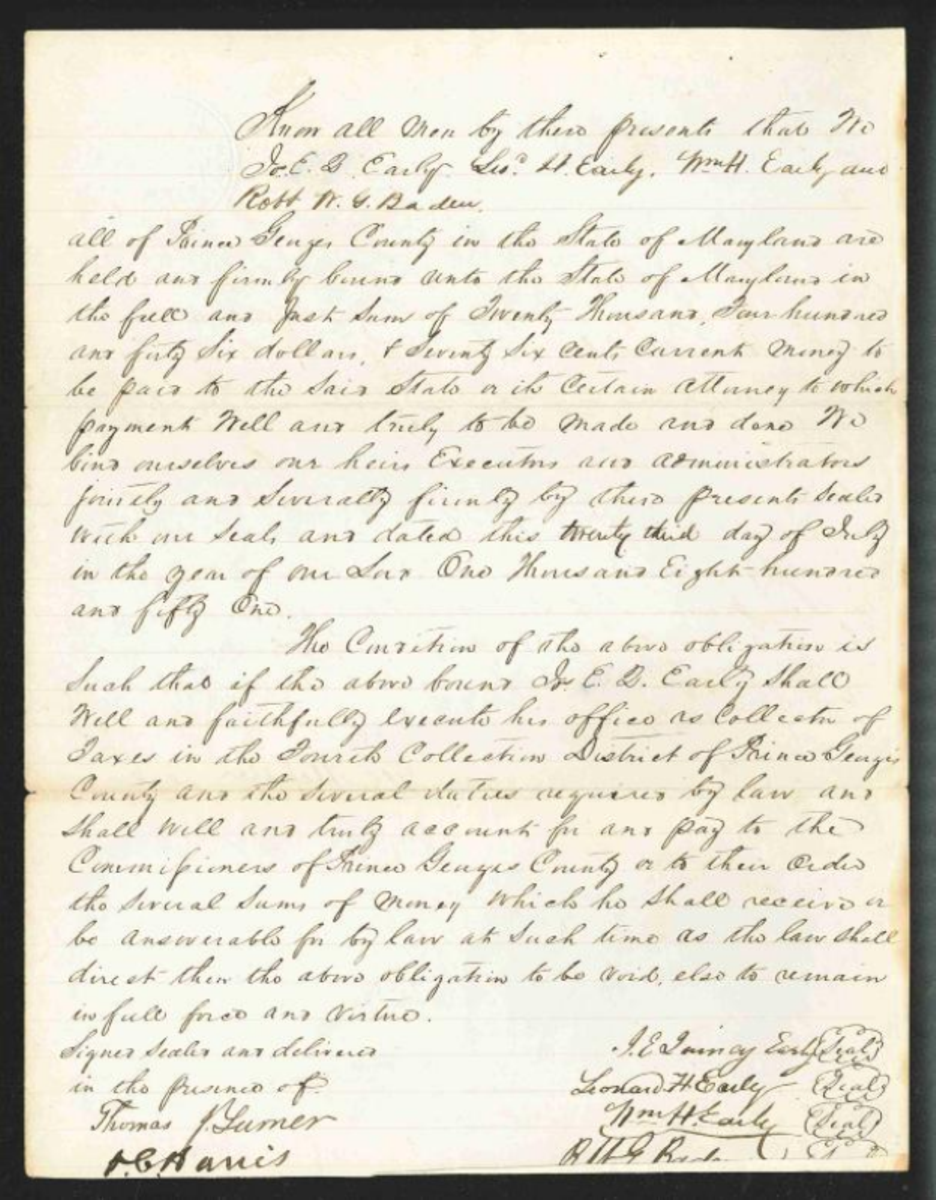 Know all Men by these presents that We
Jo. E. Q. Early. Leo.d H. Early. Wm H. Early and
Robt W. G. Baden.
all of Prince Georges County in the State of Maryland are
held and firmly bound unto the State of Maryland in
the full and Just Sum of Twenty Thousand, Four hundred
and fifty Six dollars, & Seventy Six Cents Current Money to
be paid to the Said State or its Certain Attorney to which
payment Well and truly to be Made and done We
bind ourselves our heirs Executors and administrators
jointly and Severally firmly by these presents Sealed
With our Seals and dated this twenty third day of July
in the year of our Lord One Thousand Eight hundred
and fifty One.
The Condition of the above obligation is
Such that if the above bound Jo. E. Q. Early Shall
Well and faithfully execute his office as Collector of
Taxes in the Fourth Collection District of Prince Georges
County and the Several duties required by law and
Shall Well and truly account for and pay to the
Commissioners of Prince Georges County or to their Order
the Several Sums of Money Which he Shall receive or
be answerable for by law at Such time as the law Shall
direct then the above obligation to be Void, else to remain
in full force and Virtue.
Signed Sealed and delivered
in the presence of
J. E. Quincy Early (Seal)
Leonard H Early (Seal)
Thomas Turner
Wm H. Early (Seal)
Harris